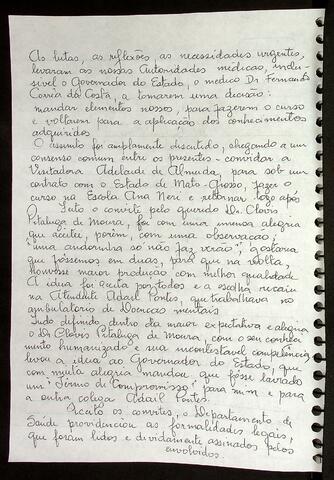 As lutas, as reflexões, as necessidades urgentes,
levaram as nossas Autoridades médicas, inclu-
sivel o Governador do Estado, o médico Dr Fernando
Corrêa da Costa, a tomarem uma decisão:
mandar elementos nossos, para fazerem o curso
e voltarem para a aplicação dos conhecimentos
adquiridos
O assunto foi amplamente discutido, chegando a um
consenso comum entre os presentes - convidar a
Visitadora Adelaide de Almeida, para sob um
contrato com o Estado de Mato-Grosso, fazer o
curso na Escola Ana Neri e retornar logo após
Feito o convite pelo querido Dr. Clovis
Pitaluga de Moura, foi com uma imensa alegria
que aceitei, porém, com uma observação;
"uma andorinha só não faz verão"; gostaria
que fôssemos em duas, para que na volta,
houvesse maior produção com melhor qualidade.
A idéia foi aceita por todos e a escolha recaiu
na Atendente Adail Pontes, que trabalhava no
ambulatório de Doenças mentais
Tudo definido, dentro da maior expectativa e alegria
o Dr Clovis Pitaluga de Moura, com o seu conheci-
mento humanizado e sua incontestavel competência
levou a idéia ao Governador do Estado, que
com muita alegria mandou que fôsse lavrado
um "Termo de Compromisso" para mim e para
a outra colega Adail Pontes.
Aceito os convites, o Departamento de
Saúde providenciou as formalidades legais,
que foram lidos e devidamente assinados pelos
envolvidos.